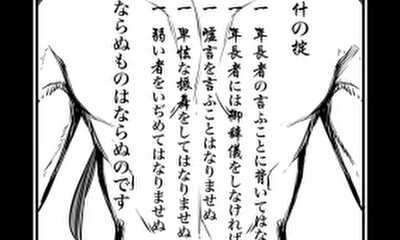 什の掟
一 年長者の言ふことに背いてはな
一 年長者には御辞儀をしなければ
一 嘘言を言ふことはなりませぬ
一 卑怯な振舞をしてはなりませぬ
一 弱い者をいぢめてはなりませぬ
ならぬものはならぬのです